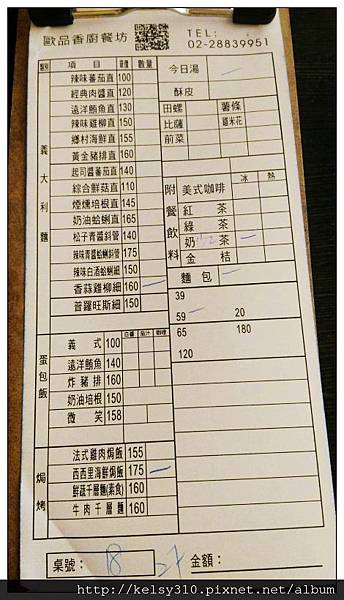 歐品香廚餐坊
TEL:
02-28839951
類別 項目 單價 數量
義大利麵
辣味蕃茄直 100
經典肉醬直 120
遠洋鮪魚直 130
辣味雞柳直 150
鄉村海鮮直 155
黃金豬排直 160
起司醬蕃茄直 140
綜合鮮菇直 110
煙燻培根直 145
奶油蛤蜊直 165
松子青醬斜管 140
辣味青醬蛤蜊斜管 175
辣味白酒蛤蜊細 150
香蒜雞柳細 160
普羅旺斯細 150
蛋包飯
白醬 茄汁 咖哩
義式 100
遠洋鮪魚 140
炸豬排 160
奶油培根 150
微笑 158
焗烤
法式雞肉焗飯 155
西西里海鮮焗飯 175
鮮蔬千層麵(素食) 160
牛肉千層麵 160
今日湯
酥皮
田螺 薯條
比薩 雞米花
前菜
附餐飲料
冰 熱
美式咖啡
紅茶
綠茶
奶茶
金桔
麵包
39
59 20
65 180
120
桌號: 18 27 金額:
http://kelsy310.pixnet.net/album